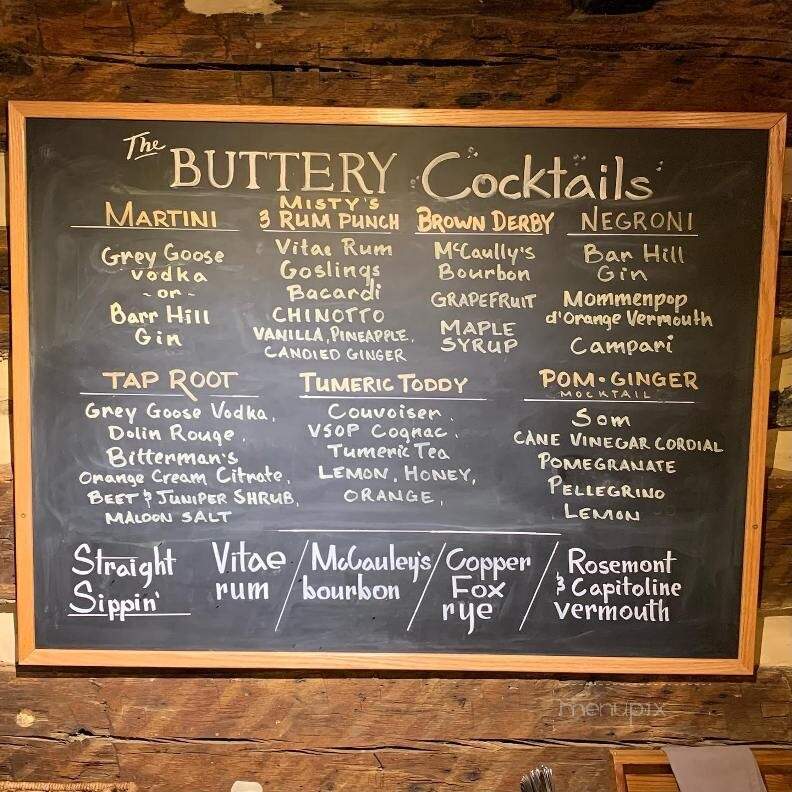 The BUTTERY Cocktails
MARTINI
Grey Goose
vodka
- or -
Barr Hill
Gin
MISTY'S
3 RUM PUNCH
Vitae Rum
Goslings
Bacardi
CHINOTTO
VANILLA, PINEAPPLE,
CANDIED GINGER
BROWN DERBY
McCaully's
Bourbon
GRAPEFRUIT
MAPLE
SYRUP
NEGRONI
Bar Hill
Gin
Mommenpop
d'Orange Vermouth
Campari
TAP ROOT
Grey Goose Vodka,
Dolin Rouge,
Bitterman's
Orange Cream Citrate,
BEET & JUNIPER SHRUB,
MALDON SALT
TUMERIC TODDY
Couvoiser,
VSOP Cognac,
Tumeric Tea
LEMON, HONEY,
ORANGE,
POM-GINGER
MOCKTAIL
Som
CANE VINEGAR CORDIAL
POMEGRANATE
PELLEGRINO
LEMON
Straight
Sippin'
Vitae
rum /
McCauley's
bourbon /
Copper
Fox
rye /
Rosemont
& Capitoline
vermouth
menupix